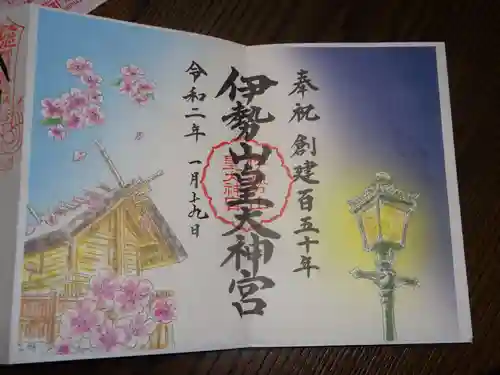 奉祝 創建百五十年
伊勢山皇大神宮
令和二年 一月十九日